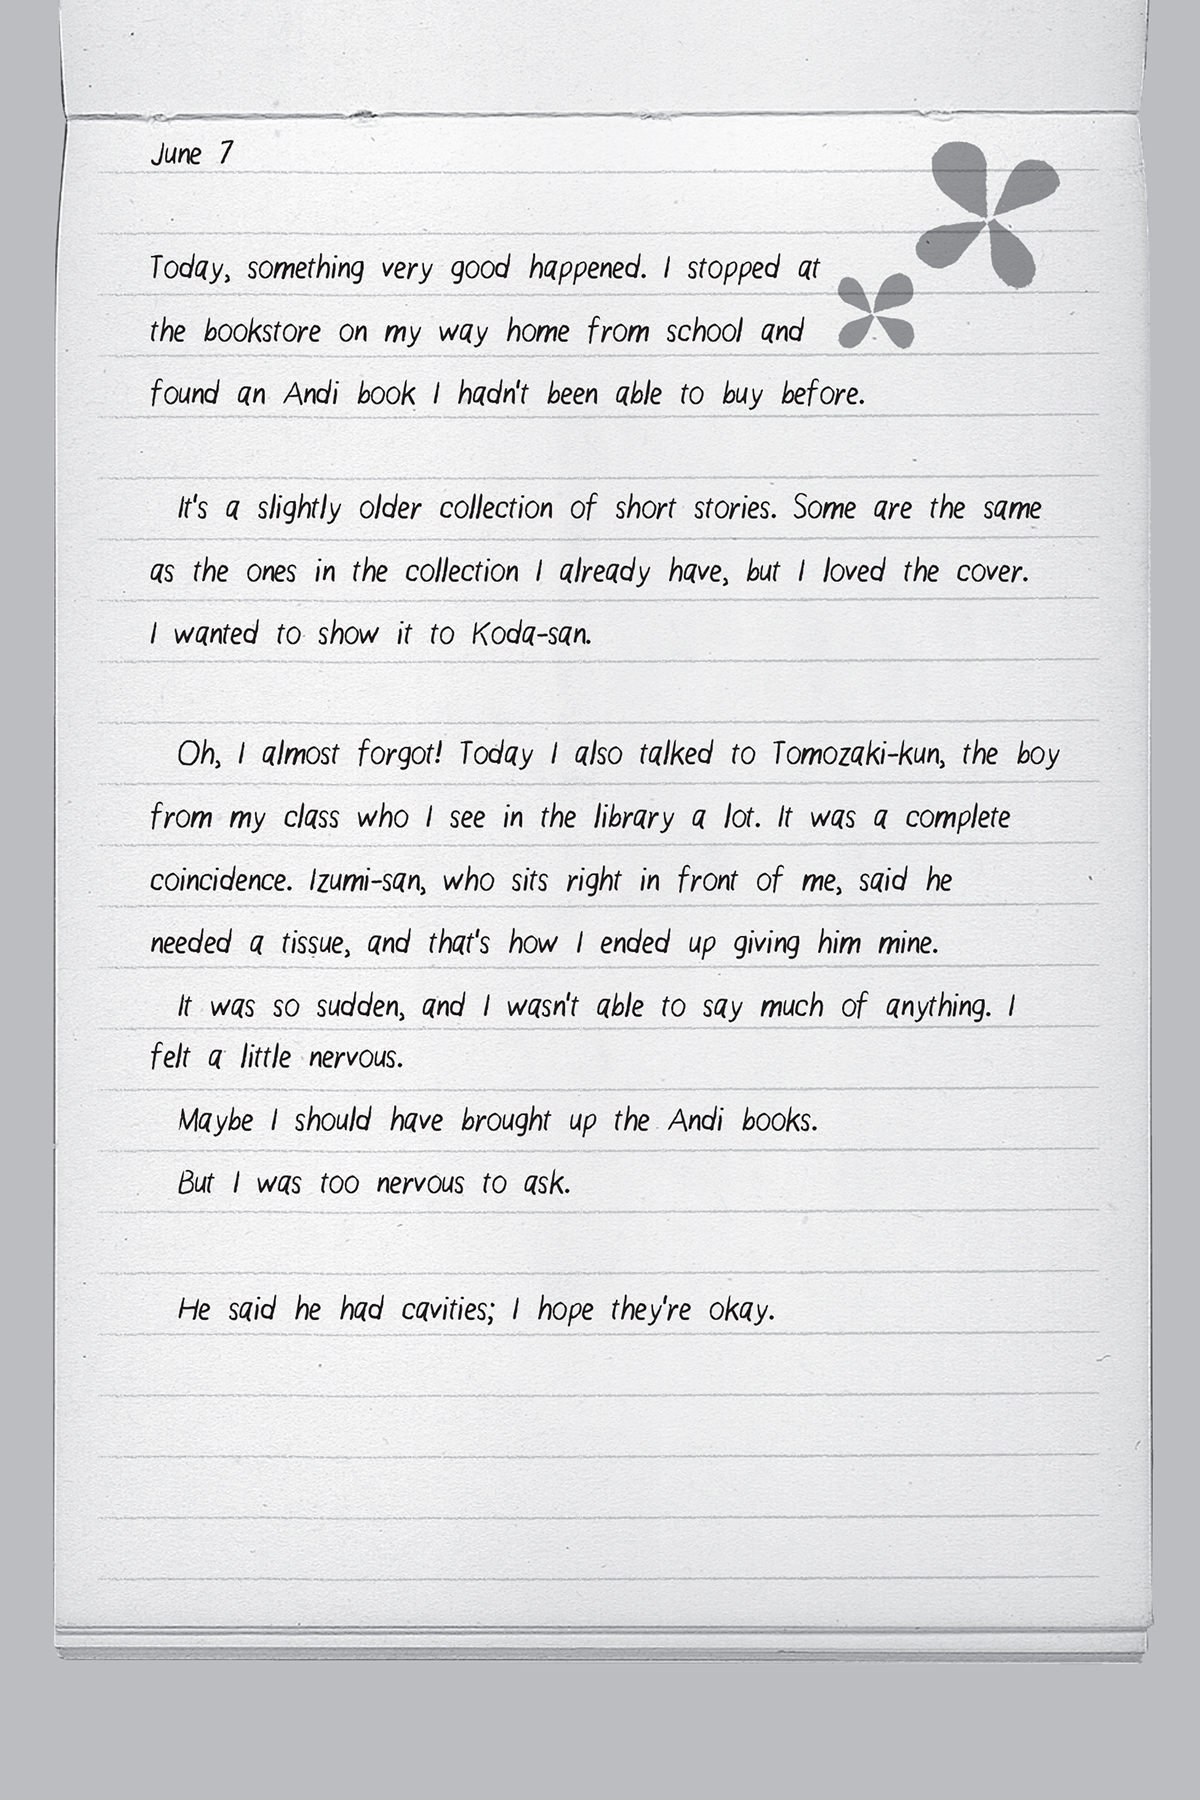 June 7
Today, something very good happened. I stopped at
the bookstore on my way home from school and
found an Andi book I hadn't been able to buy before.
It's a slightly older collection of short stories. Some are the same
as the ones in the collection I already have, but I loved the cover.
I wanted to show it to Koda-san.
Oh, I almost forgot! Today I also talked to Tomozaki-kun, the boy
from my class who I see in the library a lot. It was a complete
coincidence. Izumi-san, who sits right in front of me, said he
needed a tissue, and that's how I ended up giving him mine.
It was so sudden, and I wasn't able to say much of anything. I
felt a little nervous.
Maybe I should have brought up the Andi books.
But I was too nervous to ask.
He said he had cavities; I hope they're okay.